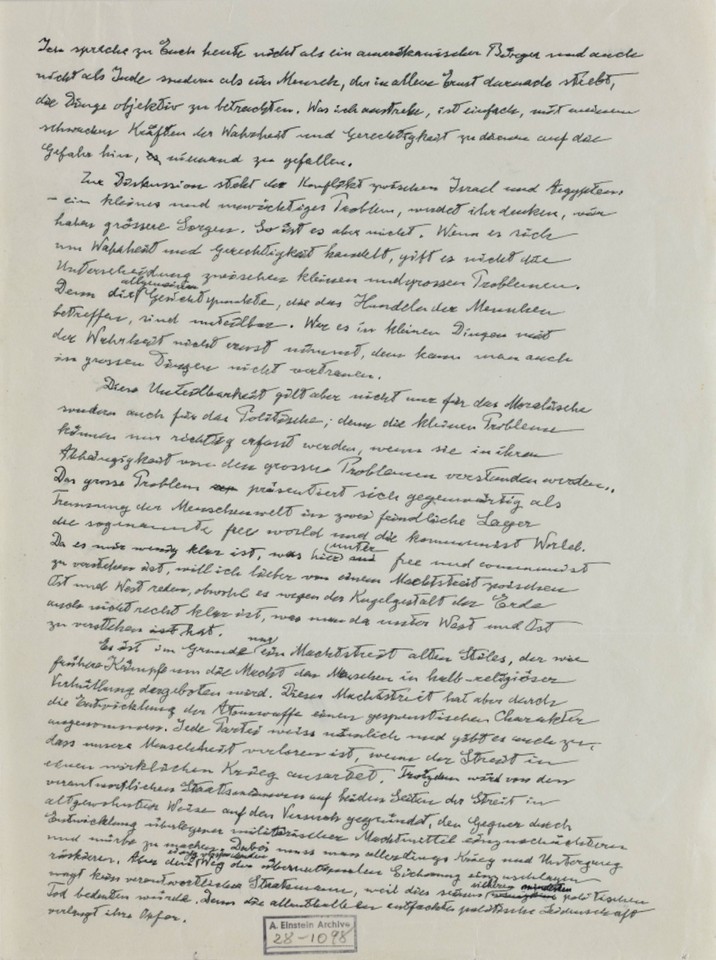 Ich spreche zu Euch heute nicht als ein amerikanischer Bürger und auch
nicht als Jude sondern als ein Mensch, der in allem Ernst danach strebt,
die Dinge objektiv zu betrachten. Was ich anstrebe, ist einfach, mit meinen
schwachen Kräften der Wahrheit und Gerechtigkeit zu dienen auf die
Gefahr hin, niemand zu gefallen.
Zur Diskussion steht der Konflikt zwischen Israel und Aegypten.
- ein kleines und unwichtiges Problem, werdet ihr denken, wir
haben grössere Sorgen. So ist es aber nicht. Wenn es sich
um Wahrheit und Gerechtigkeit handelt, gibt es nicht die
Unterscheidung zwischen kleinen und grossen Problemen.
allgemeinen
Denn die Gesichtspunkte, die das Handeln der Menschen
betreffen, sind unteilbar. Wer es in kleinen Dingen mit
der Wahrheit nicht ernst nimmt, dem kann man auch
in grossen Dingen nicht vertrauen.
Diese Unteilbarkeit gilt aber nicht nur für das Moralische
sondern auch für das Politische; denn die kleinen Probleme
können nur richtig erfasst werden, wenn sie in ihrer
Abhängigkeit von den grossen Problemen verstanden werden.
Das grosse Problem präsentiert sich gegenwärtig als
Trennung der Menschenwelt in zwei feindliche Lager
die sogenannte free world und die kommunist World.
unter
Da es mir wenig klar ist, was hier free und communist
zu verstehen ist, will ich lieber von einem Machtstreit zwischen
Ost und West reden, obwohl es wegen der Kugelgestalt der Erde
auch nicht recht klar ist, was man da unter West und Ost
zu verstehen ist hat.
nur
Es ist im Grunde ein Machtstreit alten Stiles, der wie
frühere Kämpfe um die Macht den Menschen in halb-religiöser
Verhüllung dargeboten wird. Dieser Machtstreit hat aber durch
die Entwicklung der Atomwaffe einen gespenstischen Charakter
angenommen. Jede Partei weiss nämlich und gibt es auch zu,
dass unsere Menschheit verloren ist, wenn der Streit in
einen wirklichen Krieg ausartet. Trotzdem wird von den
verantwortlichen Staatsmännern auf beiden Seiten der Streit in
altgewohnter Weise auf den Versuch gegründet, den Gegner durch
Entwicklung überlegener militärischer Machtmittel einzuschüchtern
und mürbe zu machen. Dabei muss man allerdings Krieg und Untergang
riskieren. Aber den Weg der übernationalen Einigung einzuschlagen
sicheren
wagt kein verantwortlicher Staatsmann, weil dies seinen politischen
Tod bedeuten würde. Denn die allenthalben entfachte politische Leidenschaft
verlangt ihre Opfer.
A. Einstein Archive
28-1098